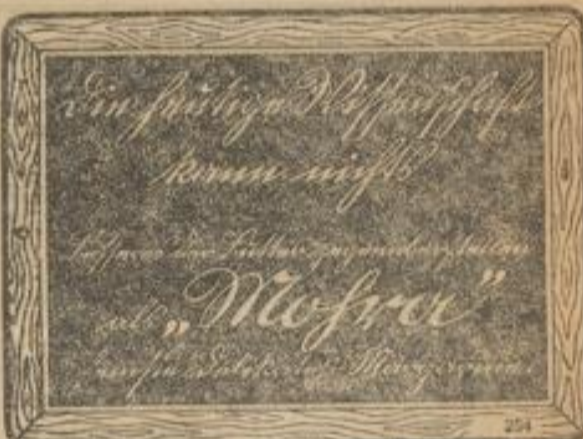 Die heutige Wissenschaft
kann nichts
besseres der Butter gegenüberstellen
als „Mohra“
Margarine.
254